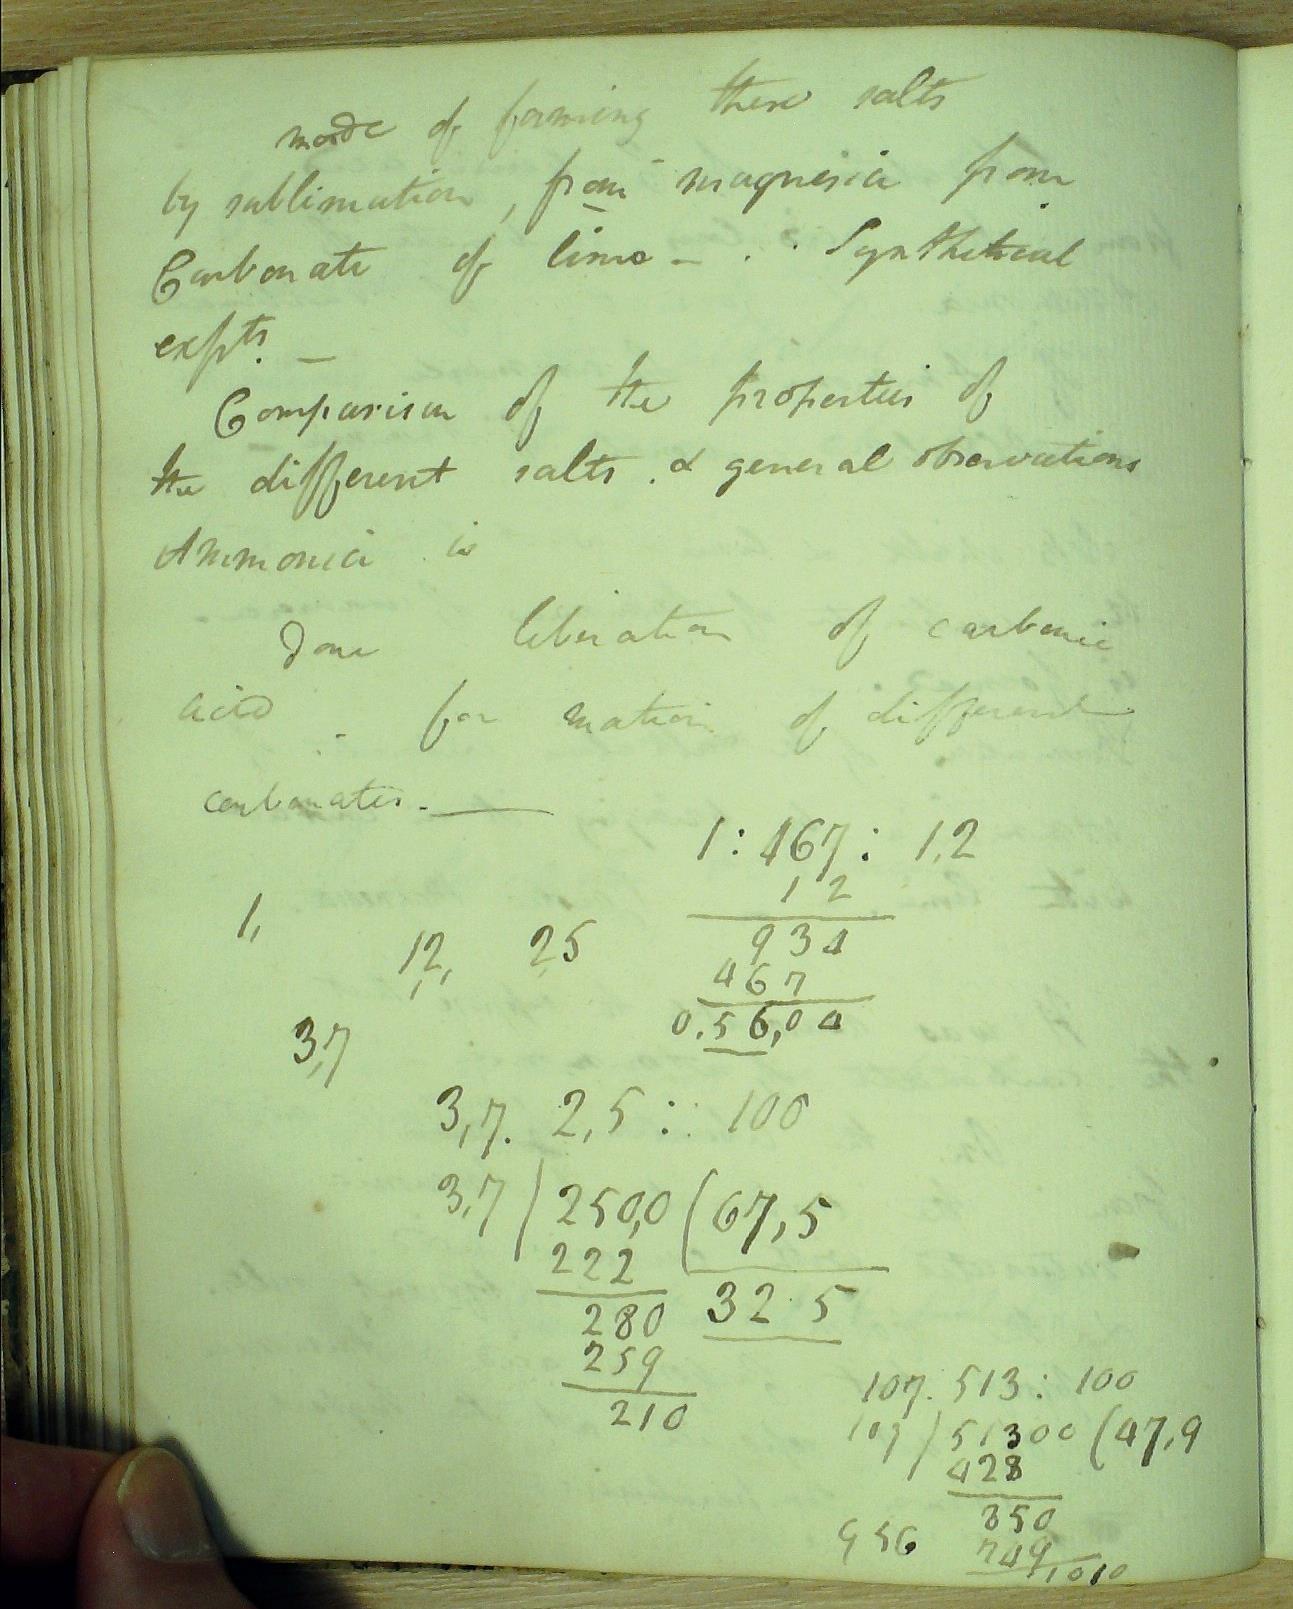 mode of forming these salts
by sublimation, from magnesia from
Carbonate of lime - . . Synthetical
expts. —
Comparison of the properties of
the different salts . & general observations
Ammonia is
Done liberation of carbonic
acid . - for mation of different
carbonates. ——
1 : 467 : 1,2
1 2
1,
12, 25
934
467
0.56,04
3,7
3,7. 2,5 :: 100
3,7 ) 250,0 ( 67,5
222
280 32.5
259
210
107. 513 : 100
107 ) 51300 ( 47,9
428
850
956 749
1010